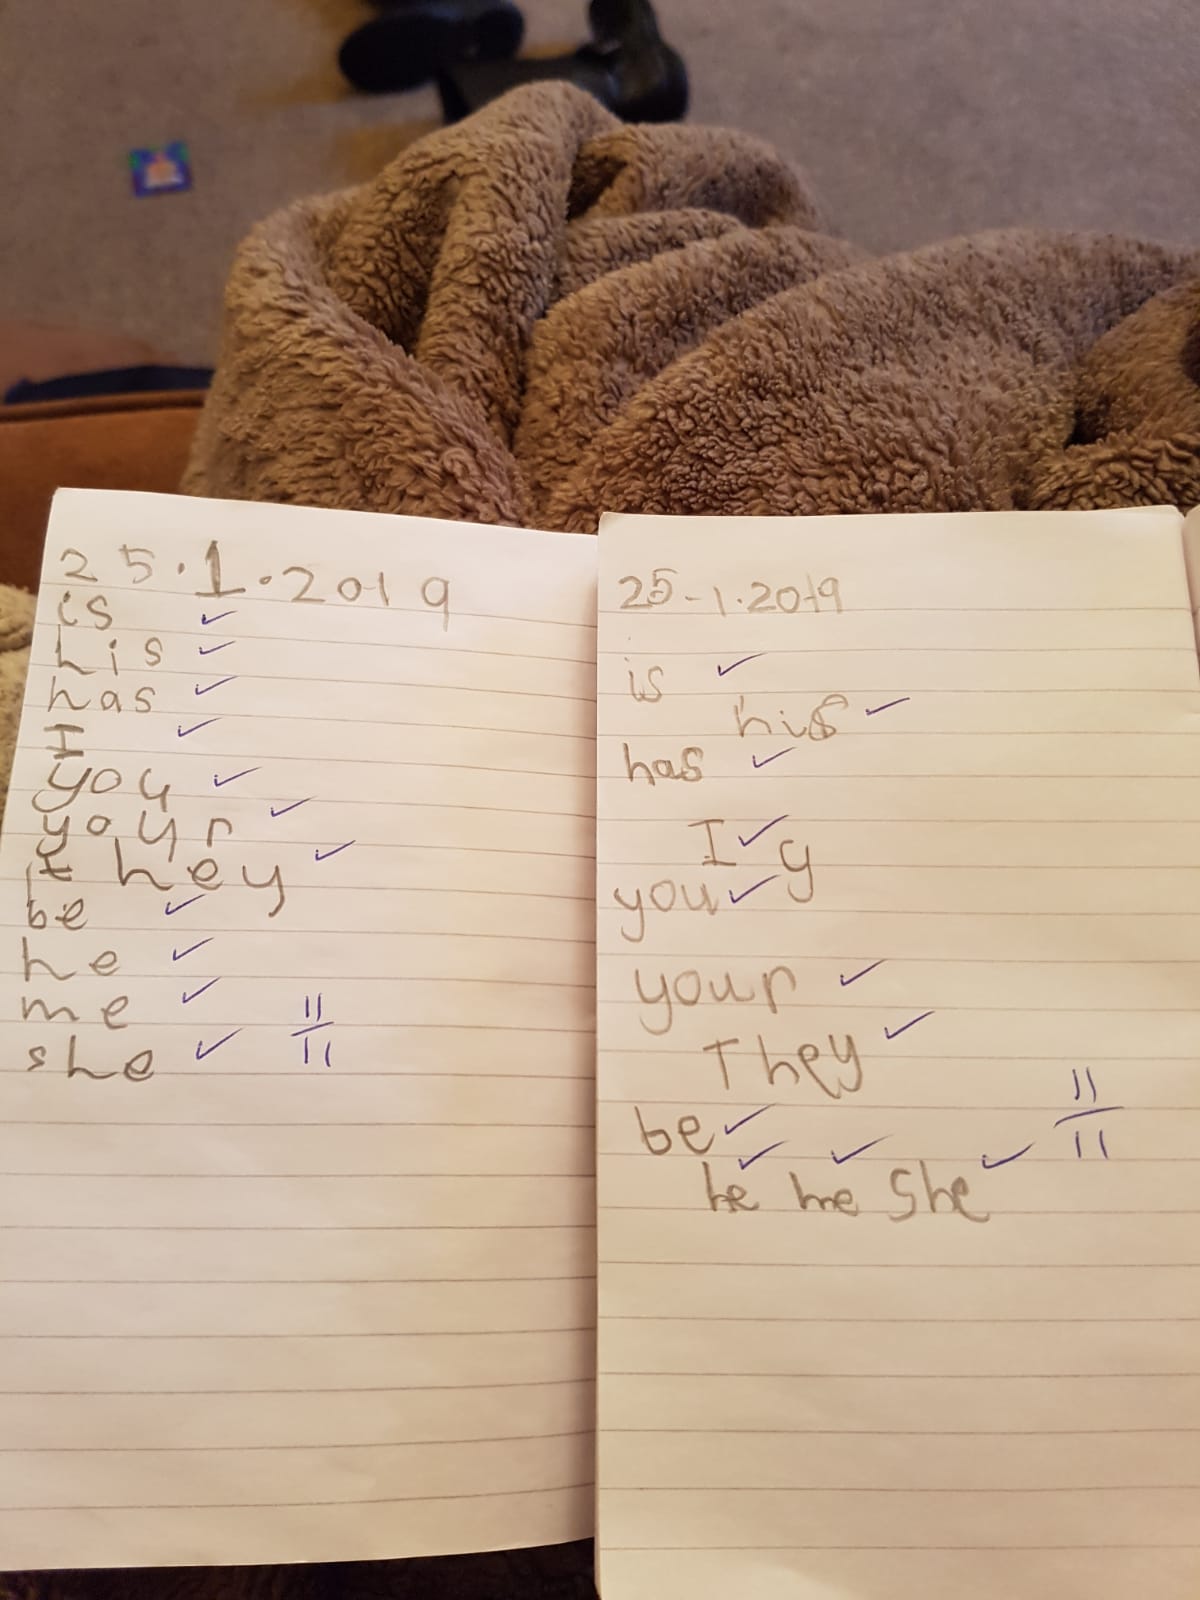 25.1.2019
is ✓
his ✓
has ✓
I ✓
you ✓
your ✓
they ✓
be ✓
he ✓
me ✓
she ✓ 11/11
25-1.2019
is ✓
his ✓
has ✓
I ✓ y
you ✓
your ✓
They ✓
be ✓
he ✓ me ✓ She ✓ 11/11